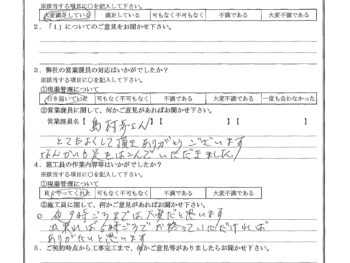 ※該当する項目に○を記入して下さい。
大変満足している 満足している 可もなく不可もなく 不満である 大変不満である
2．「1」についてのご意見をお聞かせ下さい。
3．弊社の営業課員の対応はいかがでしたか？
※該当する項目に○を記入して下さい。
①現場管理について
行き届いていた 可もなく不可もなく 不満である 大変不満である 一度も会わなかった
②営業課員に関して、何かご意見があればお聞かせ下さい。
営業課員名【 島村 さん 】【 】【 】
とてもよくして頂き ありがとうございます
なんかいも足をはこんでいただきました
4．施工員の作業内容等はいかがでしたか？
※該当する項目に○を記入して下さい。
①現場管理について
良くやってくれた 可もなく不可もなく 不満である 大変不満である
②施工員に関して、何かご意見があればお聞かせ下さい。
夜9時ごろまでは大変だと思います
出来れば5時ごろで が終っていただければ
ありがたいと思います
5．ご契約時点から工事完工まで、何かご意見等がありましたらお聞かせ下さい。